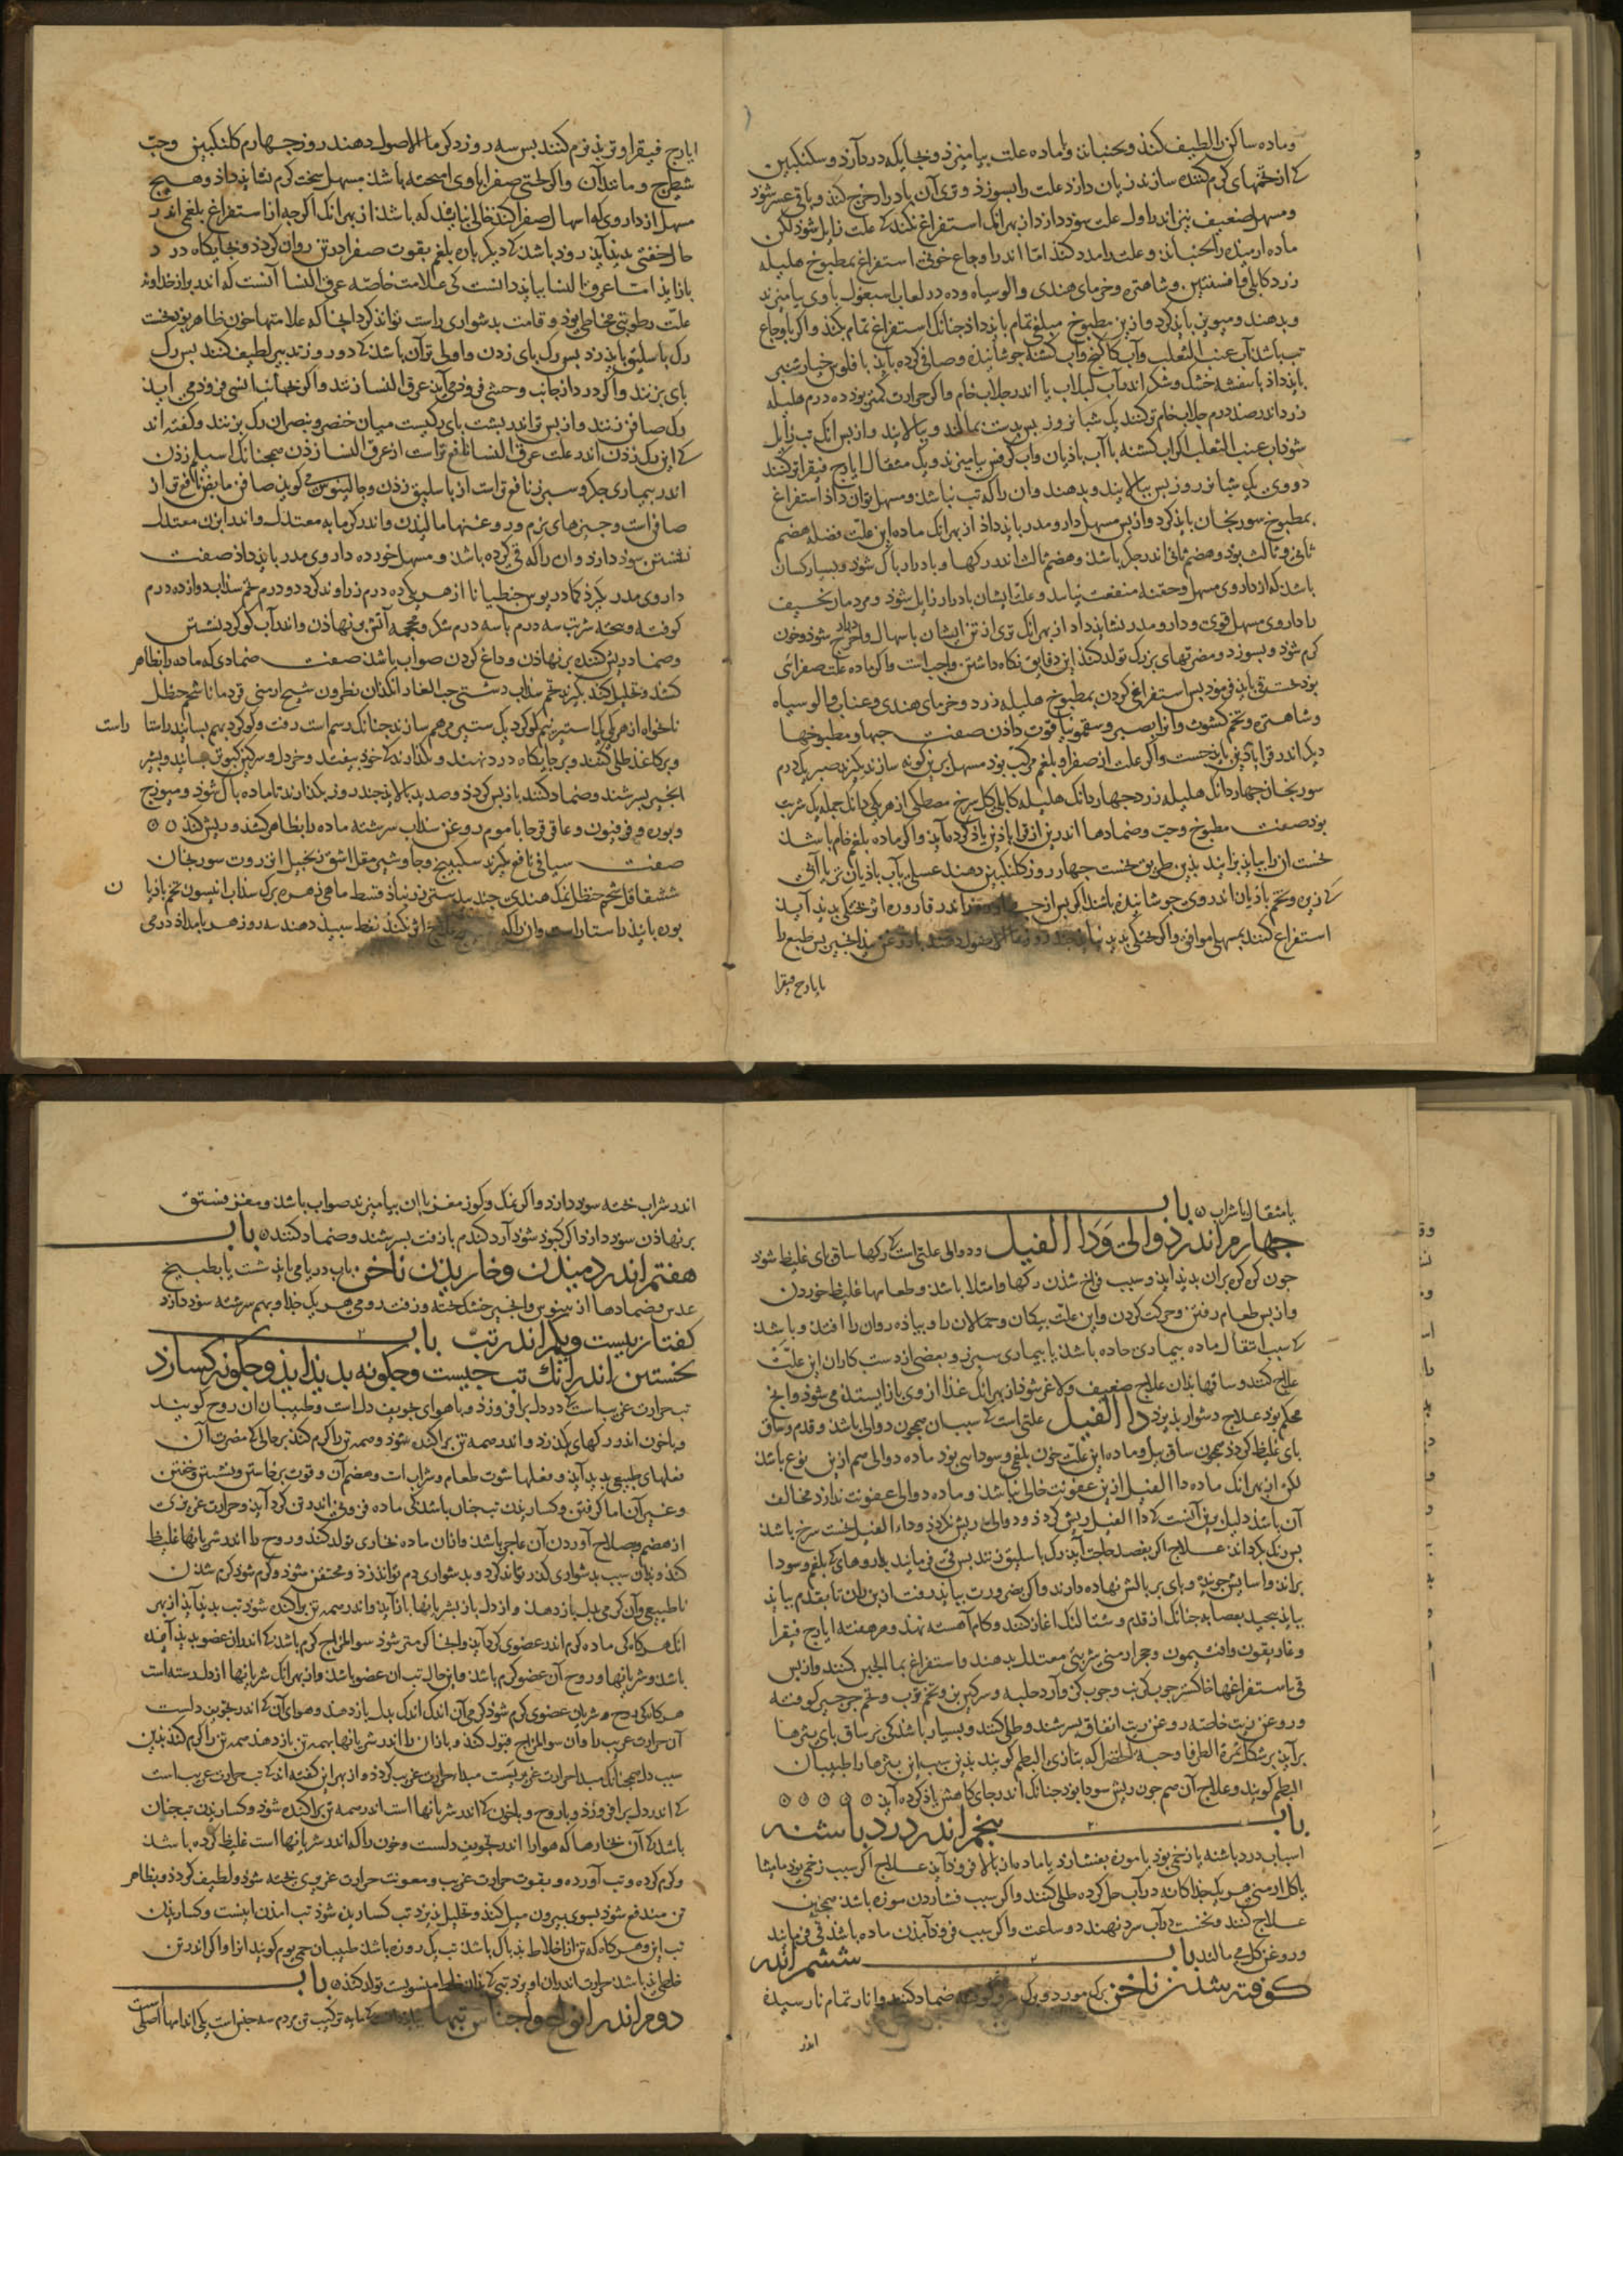 وماده ساکن را لطیف کند و بجنباند و با ماده علت بیامیزد و بجایگه درد آرد و سکنگبین
کی از تخمهای گرم کننده سازند زیان دارد علت را بسوزد و تری آن بادرار خرج کند و باقی عسر شود
و مسهل ضعیف نیز اندر اول علت سود دارد از بهر انک استفراغ نکند کی علت زایل شود لکن
ماده ارمیده را بجنباند و علت را مدد کند اما اندر اوجاع خونی استفراغ بمطبوخ هلیله
زرد کابلی و افسنتین و شاهتره و خرمای هندی و الو سیاه و ده درم لعاب اسبغول با وی بیامیزند
و بدهند و میوین باید کرد و ازین مطبوخ مبلغ تمام باید داد چنانک استفراغ تمام بکند و اگر با اوجاع
تب باشد آب عنب الثعلب و آب کاکنج و آب کشنه جوشانیده و صافی کرده باید با فلوس خیارشنبر
باید داد یا بنفشه خشک و شکر اندر آب لبلاب یا اندر جلاب خام و اگر حرارت کمتر بود ده درم هلیله
زرد اندر صد درم جلاب خام تر کنند یک شبانروز بس بدست بمالند و بپالایند و از بس انک تب زایل
شود آب عنب الثعلب و آب کشنه با آب بادیان و آب کرفس بیامیزند و یک مثقال ایارج فیقرا تر کنند
دو وی یک شبانروز بس بپالایند و بدهند و ان را که تب نباشد و مسهل توان داد استفراغ
بمطبوخ سورنجان باید کرد و از بس مسهل دارو مدر باید داد از بهر انک ماده این علت فضله هضم
ثانی و ثالث بود و هضم ثانی اندر جگر باشد و هضم ثالث اندر رگها و بادرار پاک شود و بسیار کسان
باشد که از داروی مسهل و حقنه منفعت نیابند و علت ایشان بادرار زایل شود و مردمان نحیف
را داروی مسهل قوی و دارو مدر نشاید داد از بهر انک تری از تن ایشان باسهال و ادرار خرج شود و خون
گرم شود و بسوزد و مضرتهای بزرگ تولد کند این دقایق نگاه داشتن واجب است و اگر ماده علت صفرائی
بود نخست قی باید فرمود بس استفراغ کردن بمطبوخ هلیله زرد و خرمای هندی و عناب و الو سیاه
و شاهتره و تخم کشوث و انرا بصبر و سقمونیا قوت دادن صفت حبها و مطبوخها
دیگر اندر قراباذین باید جست و اگر علت از صفرا و بلغم مرکب بود مسهل برین گونه سازند بگیرند صبر یک درم
سورنجان چهار دانک هلیله زرد چهار دانک هلیله کابلی گل سرخ مصطکی از هر یکی دانک جمله یک شربت
بود صفت مطبوخ و حب و ضمادها اندرین از قراباذین یاد کرده اید و اگر ماده بلغم خام باشد
نخست انرا بباید بزانید بدین طریق نخست چهار روز گلنگبین دهند عسلی با آب بادیان تر یا آبی
کی زیره و تخم بادیان اندر وی جوشانیده باشند اگر بس از چهار روز اندر قاروره اثر پختگی بدید آید
استفراغ کنند بمسهل موافق و اگر پختگی بدید نیاید چند روز ماالاصول دهند با روغن بیدانجیر بس طبع را
بایارج فیقرا
ایارج فیقرا و تربد نرم کنند بس سه روز دگر ماالاصول دهند روز چهارم گلنگبین و حب
شیطرج و مانند آن و اگر لختی صفرا با وی امیخته باشد مسهل سخت گرم نشاید داد و هیچ
مسهل از داروی که اسهال صفرا کند خالی نباید که باشد از بهر انک اگر چه از استفراغ بلغمی اندر
حال خفتی بدید آید زود باشد کی دیگر باره بلغم بقوت صفرا در تن روان گردد و بجایگاه درد
باز اید اما عرق النسا بباید دانست کی علامت خاصه عرق النسا آنست که اندر براز خداوند
علت رطوبتی مخاطی بود و قامت بدشواری راست تواند کرد انجا که علامتها خون ظاهر بود نخست
رگ باسلیق باید زد بس رگ پای زدن و اولی تر آن باشد کی دو روز تدبیر لطیف کنند بس رگ
پای بزنند و اگر درد از جانب وحشی فرود می آید عرق النسا زنند و اگر بجانب انسی فرود می اید
رگ صافن زنند و از بس تر اندر بشت پای رگیست میان خنصر و بنصر ان رگ بزنند و گفته اند
کی این رگ زدن اندر علت عرق النسا نافع تر است از عرق النسا زدن همچنانک اسیلم زدن
اندر بیماری جگر و سبرز نافع تر است از باسلیق زدن و جالینوس می گوید صافن مابض نافع تر از
صافن است و چیزهای نرم و روغنها مالیدن و اندر گرمابه معتدل و اندر ابزن معتدل
نشستن سود دارد و ان را که قی کرده باشد و مسهل خورده داروی مدر باید داد صفت
داروی مدر بگیرند کمادریوس جنطیانا از هر یکی ده درم زراوند گرد دو درم تخم سداب دوازده درم
کوفته و بیخته شربت سه درم با سه درم شکر و محجمه آتش نهادن و اندر آب گوگرد نشستن
و ضماد ریش کننده برنهادن و داغ کردن صواب باشد صفت ضمادی که ماده را بظاهر
کشد و تحلیل کند بگیرند تخم سداب دشتی حب الغار انگدان نطرون شیح ارمنی قردمانا شحم حنظل
نانخواه از هر یکی یک استیر نیم گوگرد یک ستیر مرهم سازند چنانک رسم است زفت و گوگرد بهم بسایند راستا راست
و بر کاغذ طلی کنند و بر جایگاه درد نهند و بگذارند کی خود بیفتد و خردل و سرگین کبوتر بسایند و بشیر
انجیر بسرشند و ضماد کنند باز بس گردد و صدید بپالاید چند روز بگذارند تا ماده پاک شود و میوزج
و بوره و فرفیون و عاقرقرحا با موم روغن سداب سرشته ماده را بظاهر کشد و ریش کند
صفت شیافی نافع بگیرند سکبینج و جاوشیر مقل اشق زنجبیل انزروت سورنجان
ششقاقل شحم حنظل نمک هندی جندبیدستر زرنباذ قسط ماهی زهره برگ سداب انیسون تخم رازیا ن
بوره باید راستاراست و ان را که هیچ علاج اثر نکند نفط سبید دهند سه روز هر بامداد درمی
یا مثقال با شراب باب
چهارم اندر دوالی و دا الفیل دوالی علتی است کی رگها ساق پای غلیظ شود
چون گره گره بران بدید اید و سبب فراخ شدن رگها و امتلا باشد و طعامها غلیظ خوردن
و از بس طعام رفتن و حرکت کردن و این علت پیکان و حمالان را و بیاده روان را افتد و باشد
کی سبب انتقال ماده بیماری حاده باشد یا بیماری سبرز و بعضی از دست کاران این علت
علاج کنند و ساقها بدان علاج ضعیف و لاغر شود از بهر انک غذا از وی باز ایستد می شود و انچ
محکم بود علاج دشوار پذیرد دا الفیل علتی است کی سبب ان همچون دوالی باشد و قدم و ساق
پای غلیظ گردد همچون ساق بیل و ماده این علت خون بلغمی و سودایی بود ماده دوالی هم ازین نوع باشد
لکن از بهر انک ماده دا الفیل ازین عفونت خالی نباشد و ماده دوالی عفونت ندارد مخالف
آن باشد دلیل برین آنست کی دا الفیل ریش گردد و دوالی ریش نگردد و داء الفیل نخست سرخ باشد
بس رنگ بگرداند علاج اگر بفصد حاجت آید رگ باسلیق زنند بس قی فرمایند بداروهای کی بلغم و سودا
براند و اسایش جویند و پای بر بالش نهاده دارند و اگر بضرورت بباید رفت از بن ران تا بقدم بباید
بباید پیچید بعصابه چنانک از قدم و شتالنگ اغاز کنند و گام آهسته نهند و هر هفته ایارج فیقرا
و غاریقون و افتیمون و حجر ارمنی شربتی معتدل بدهند و استفراغ بماالجبن کنند و از بس
قی با ستفراغها خاکستر جوب کرنب و جوب گز و آرد حلبه و سرگین بز و تخم ترب و تخم جرجیر کوفته
و روغن زیت خاصه روغن زیت انفاق بسرشند و طلی کنند و بسیار باشد کی بر ساق پای بثرها
برآید بر شکل ثمرة الطرفا و حبة الخضرا که بتازی البطم گویند بدین سبب این بثرها را طبیبان
البطم گویند و علاج آن هم چون ریش سودا بود چنانک اندر جایگاهش یاد کرده آید
باب پنجم اندر درد باشنه
اسباب درد باشنه یا زخمی بود یا موزه بفشارد یا ماده از بالا فرود آید علاج اگر سبب زخمی بود مامیثا
یا گل ارمنی هر یک جداگانه در آب حل کرده طلی کنند و اگر سبب فشاردن موزه باشد همچنین
علاج کنند و نخست در آب سرد نهند دو ساعت و اگر سبب فرود آمدن ماده باشد قی فرمایند
و روغن گل می مالند باب ششم اندر
کوفته شدن ناخن برگ مورد و برگ سرو کوفته ضماد کنند و انار تمام نارسیده
اندر
اندر شراب پخته سود دارد و اگر نمک و گوز مغز با ان بیامیزند صواب باشد و مغز فستق
برنهادن سود دارد و اگر کبود شود آرد گندم با زفت بسرشند و ضماد کنند باب
هفتم اندر دمیدن و خاریدن ناخن باب دریا می باید شست یا بطبیخ
عدس و ضمادها از سوس و انجیر خشک پخته و زفت رومی هر یک جدا و بهم سرشته سود دارد
گفتار بیست و یکم اندر تب باب
نخستین اندر انک تب چیست و چگونه بدید اید و چگونه گسارد
تب حرارتی غریب است کی در دل برافروزد و با هوای تجویف دل است و طبیبان ان روح گویند
و با خون اندر رگهای بگذرد و اندر همه تن پراکنده شود و همه تن را گرم کند بر حالی کی مضرت آن
بفعلهای طبیعی بدید آید و فعلها شهوت طعام و شراب است و هضم آن و قوت برخاستن و نشستن و خفتن
و غیر آن اما گرفتن و گساریدن تب چنان باشد کی ماده فزونی اندر تن گرد آید و حرارت غریزی
از هضم و صلاح آوردن آن عاجز باشد و از ان ماده بخاری تولد کند و روح را اندر شریانها غلیظ
کند و بدان سبب بدشواری گذر تواند کرد و بدشواری دم تواند زد و محتقن شود و گرم شود گرم شدن
ناطبیعی و آن گرمی بدل باز دهد و از دل باز بشریانها باز آید و اندر همه تن پراکنده شود تب بدید آید از بهر
انک هر گاه کی ماده گرم اندر عضوی گرد آید و انجا گرمتر شود سوالمزاج گرم باشد کی اندر ان عضو بدید آمده
باشد و شریانها و روح آن عضو گرم باشد و این حال تب ان عضو باشد و از بهر انک شریانها از دل رسته است
هر گاه کی روح و شریان عضوی گرم شود گرمی آن اندک اندک بدل باز دهد و هوای آن کی اندر تجویف دلست
آن حرارت غریب را و ان سوالمزاج قبول کند و باز ان را اندر شریانها بهمه تن باز دهد همه تن را گرم کند بدین
سبب دل همچنانک مبدا حرارت غریزیست مبدا حرارت غریب گردد و از بهر این گفته اند کی تب حرارت غریب است
کی اندر دل برافروزد و با روح و با خون کی اندر شریانها است اندر همه تن پراکنده شود و گساریدن تب چنان
باشد کی آن بخارها که هوا را اندر تجویف دلست و خون را که اندر شریانها است غلیظ کرده باشد
و گرم کرده و تب آورده و بقوت حرارت غریب و معونت حرارت غریزی پخته شود و لطیف گردد و بظاهر
تن مندفع شود بسوی بیرون میل کند و تحلیل پذیرد تب گساریده شود تب امدن اینست و گساریدن
تب این و هر گاه که تن از اخلاط بد پاک باشد تب یک روزه باشد طبیبان حمی یوم گویند انرا و اگر اندر تن
خلطی بد باشد حرارت اندر ان اویزد تبی کی بدان خلط منسوبست تولد کند باب
دوم اندر انواع و اجناس تبها بباید دانست کی مایه ترکیب تن مردم سه جنس است یکی اندامها اصلی است